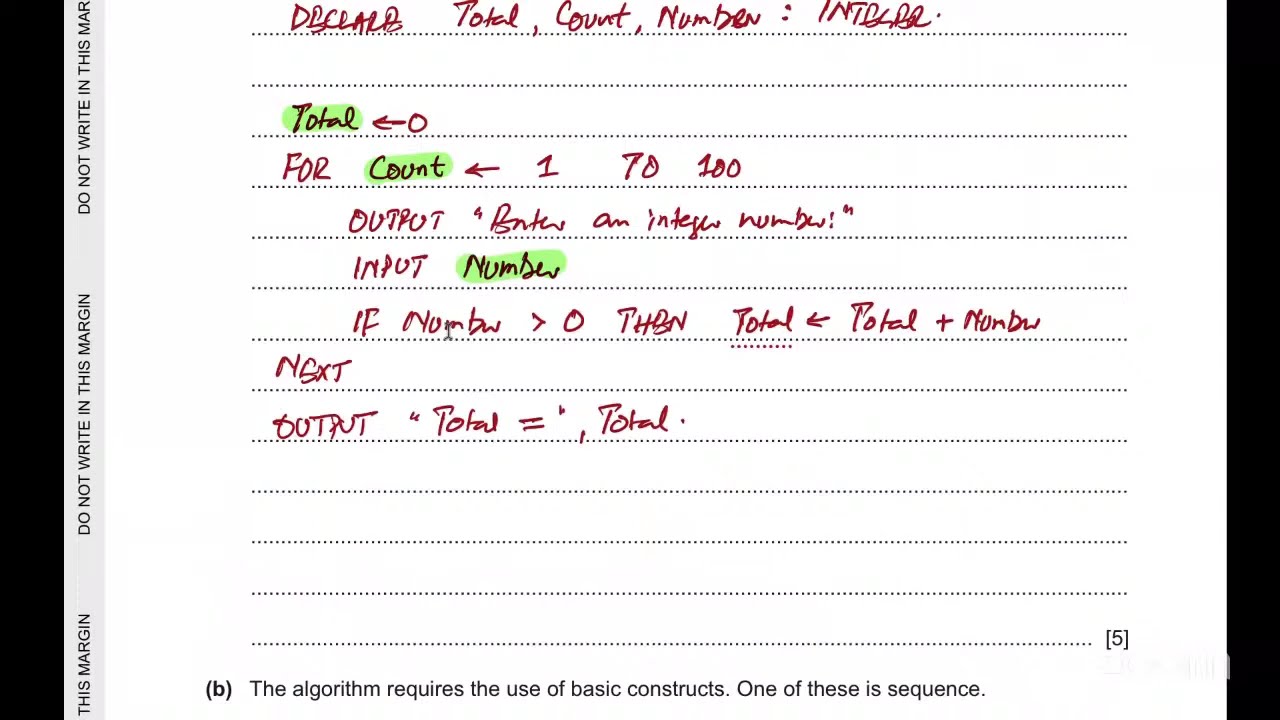 DECLARE Total, Count, Number : INTEGER.
Total ← 0
FOR Count ← 1 TO 100
OUTPUT "Enter an integer number:"
INPUT Number
IF Number > 0 THEN Total ← Total + Number
NEXT
OUTPUT "Total = ", Total.
[5]
(b) The algorithm requires the use of basic constructs. One of these is sequence.
DO NOT WRITE IN THIS MAR
DO NOT WRITE IN THIS MARGIN
THIS MARGIN